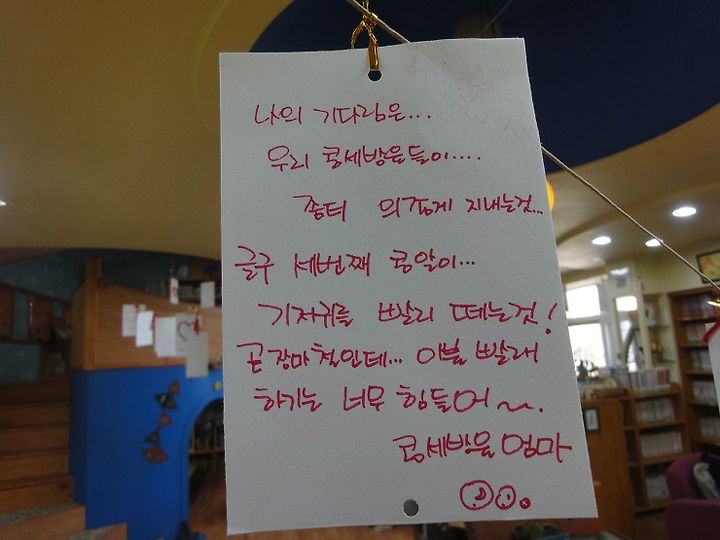 나의 기다림은...
우리 콩세방울들이....
좀더 의좋게 지내는것...
글구 세번째 콩알이...
기저귀를 빨리 떼는것!
곧 장마철인데... 이불 빨래
하기는 너무 힘들어~.
콩세방울 엄마